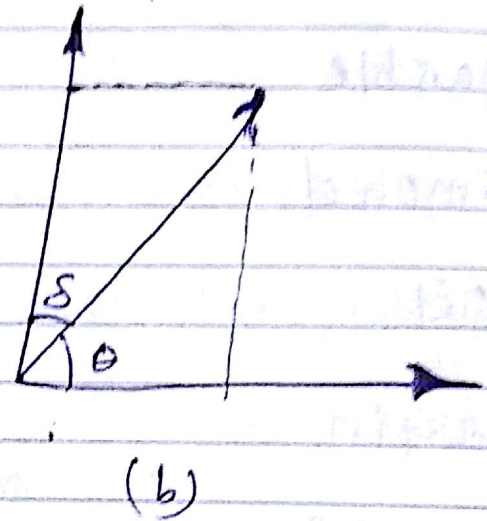 δ
θ
(b)